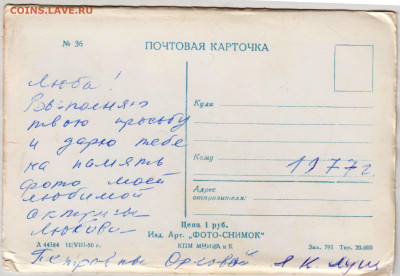 COINS.LAVE.RU
№ 36
ПОЧТОВАЯ КАРТОЧКА
Люба!
Выполняю
твою просьбу
и дарю тебе
на память
фото моей
любимой
актрисы
Любови
Петровны Орловой
Куда
Кому
1977 г
Адрес
отправителя:
Цена 1 руб.
Изд. Арт. „ФОТО-СНИМОК“
А 44584 12/VIII-50 г.
КПМ
и К
Зак. 793 Тир. 20.000